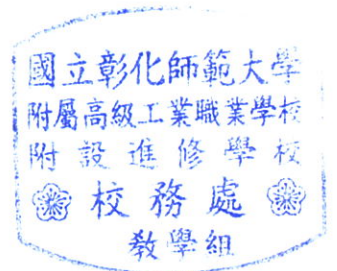 國立彰化師範大學
附屬高級工業職業學校
附設進修學校
校務處
教學組